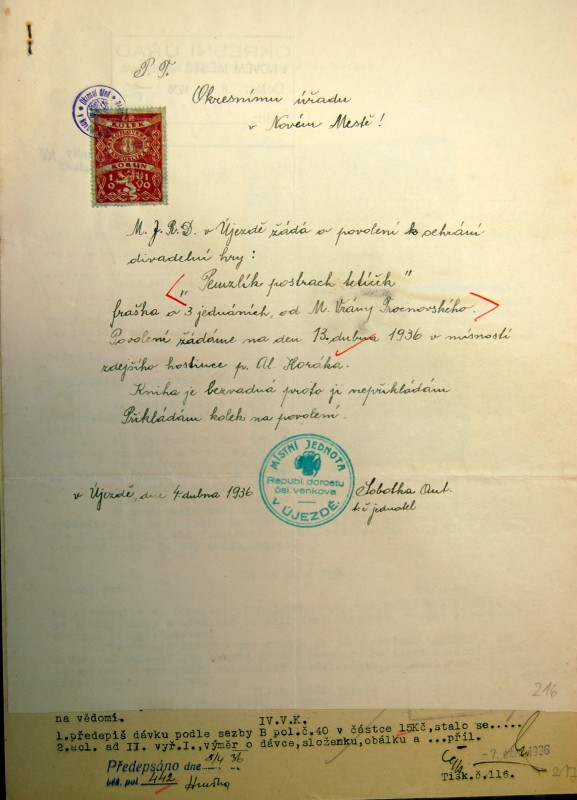 P. T.
Okresnímu úřadu
v Novém Mestě!
KOLEK
8
KORUN
1919
M. J. R. D. v Újezdě žádá o povolení k sehrání
divadelní hry:
„Pemzlík postrach tetiček"
fraška o 3 jednáních, od M. Vrány
Povolení žádáme na den 13. dubna 1936 v místnosti
zdejšího hostince p. Al. Horáka.
Kniha je bezvadná proto ji nepřikládám
Přikládám kolek na povolení.
MÍSTNÍ JEDNOTA
Republ. dorostu
čsl. venkova
V ÚJEZDĚ.
v Újezdě, dne 4 dubna 1936
Sobotka Ant.
jednatel
216
na vědomí. IV.V.K.
1.předepiš dávku podle sazby B pol.č.40 v částce 15Kč,stalo se.....
2.uol. ad II. vyř.I.,výměr o dávce,složenku,obálku a ...příl.
Předepsáno dne 8/4 36
pol 442 Hruška
-7. 1936
Tisk.č.116.
217